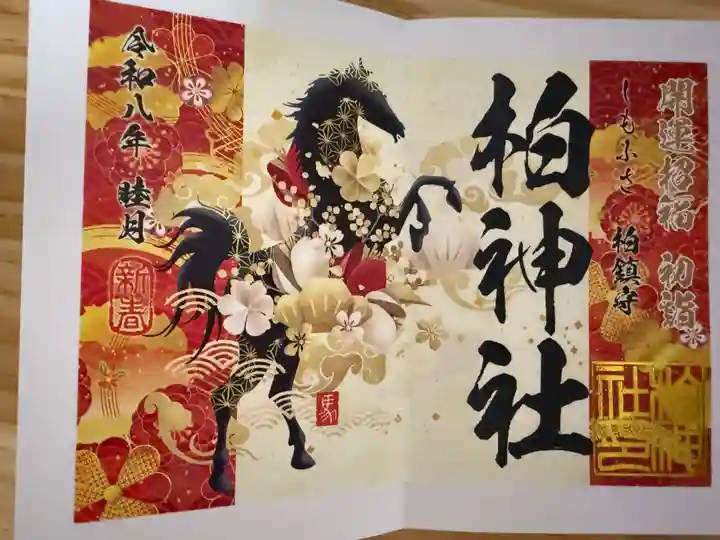 開運招福 初詣
しもふさ
柏鎮守
柏神社
柏神社印
馬
令和八年 睦月
新春